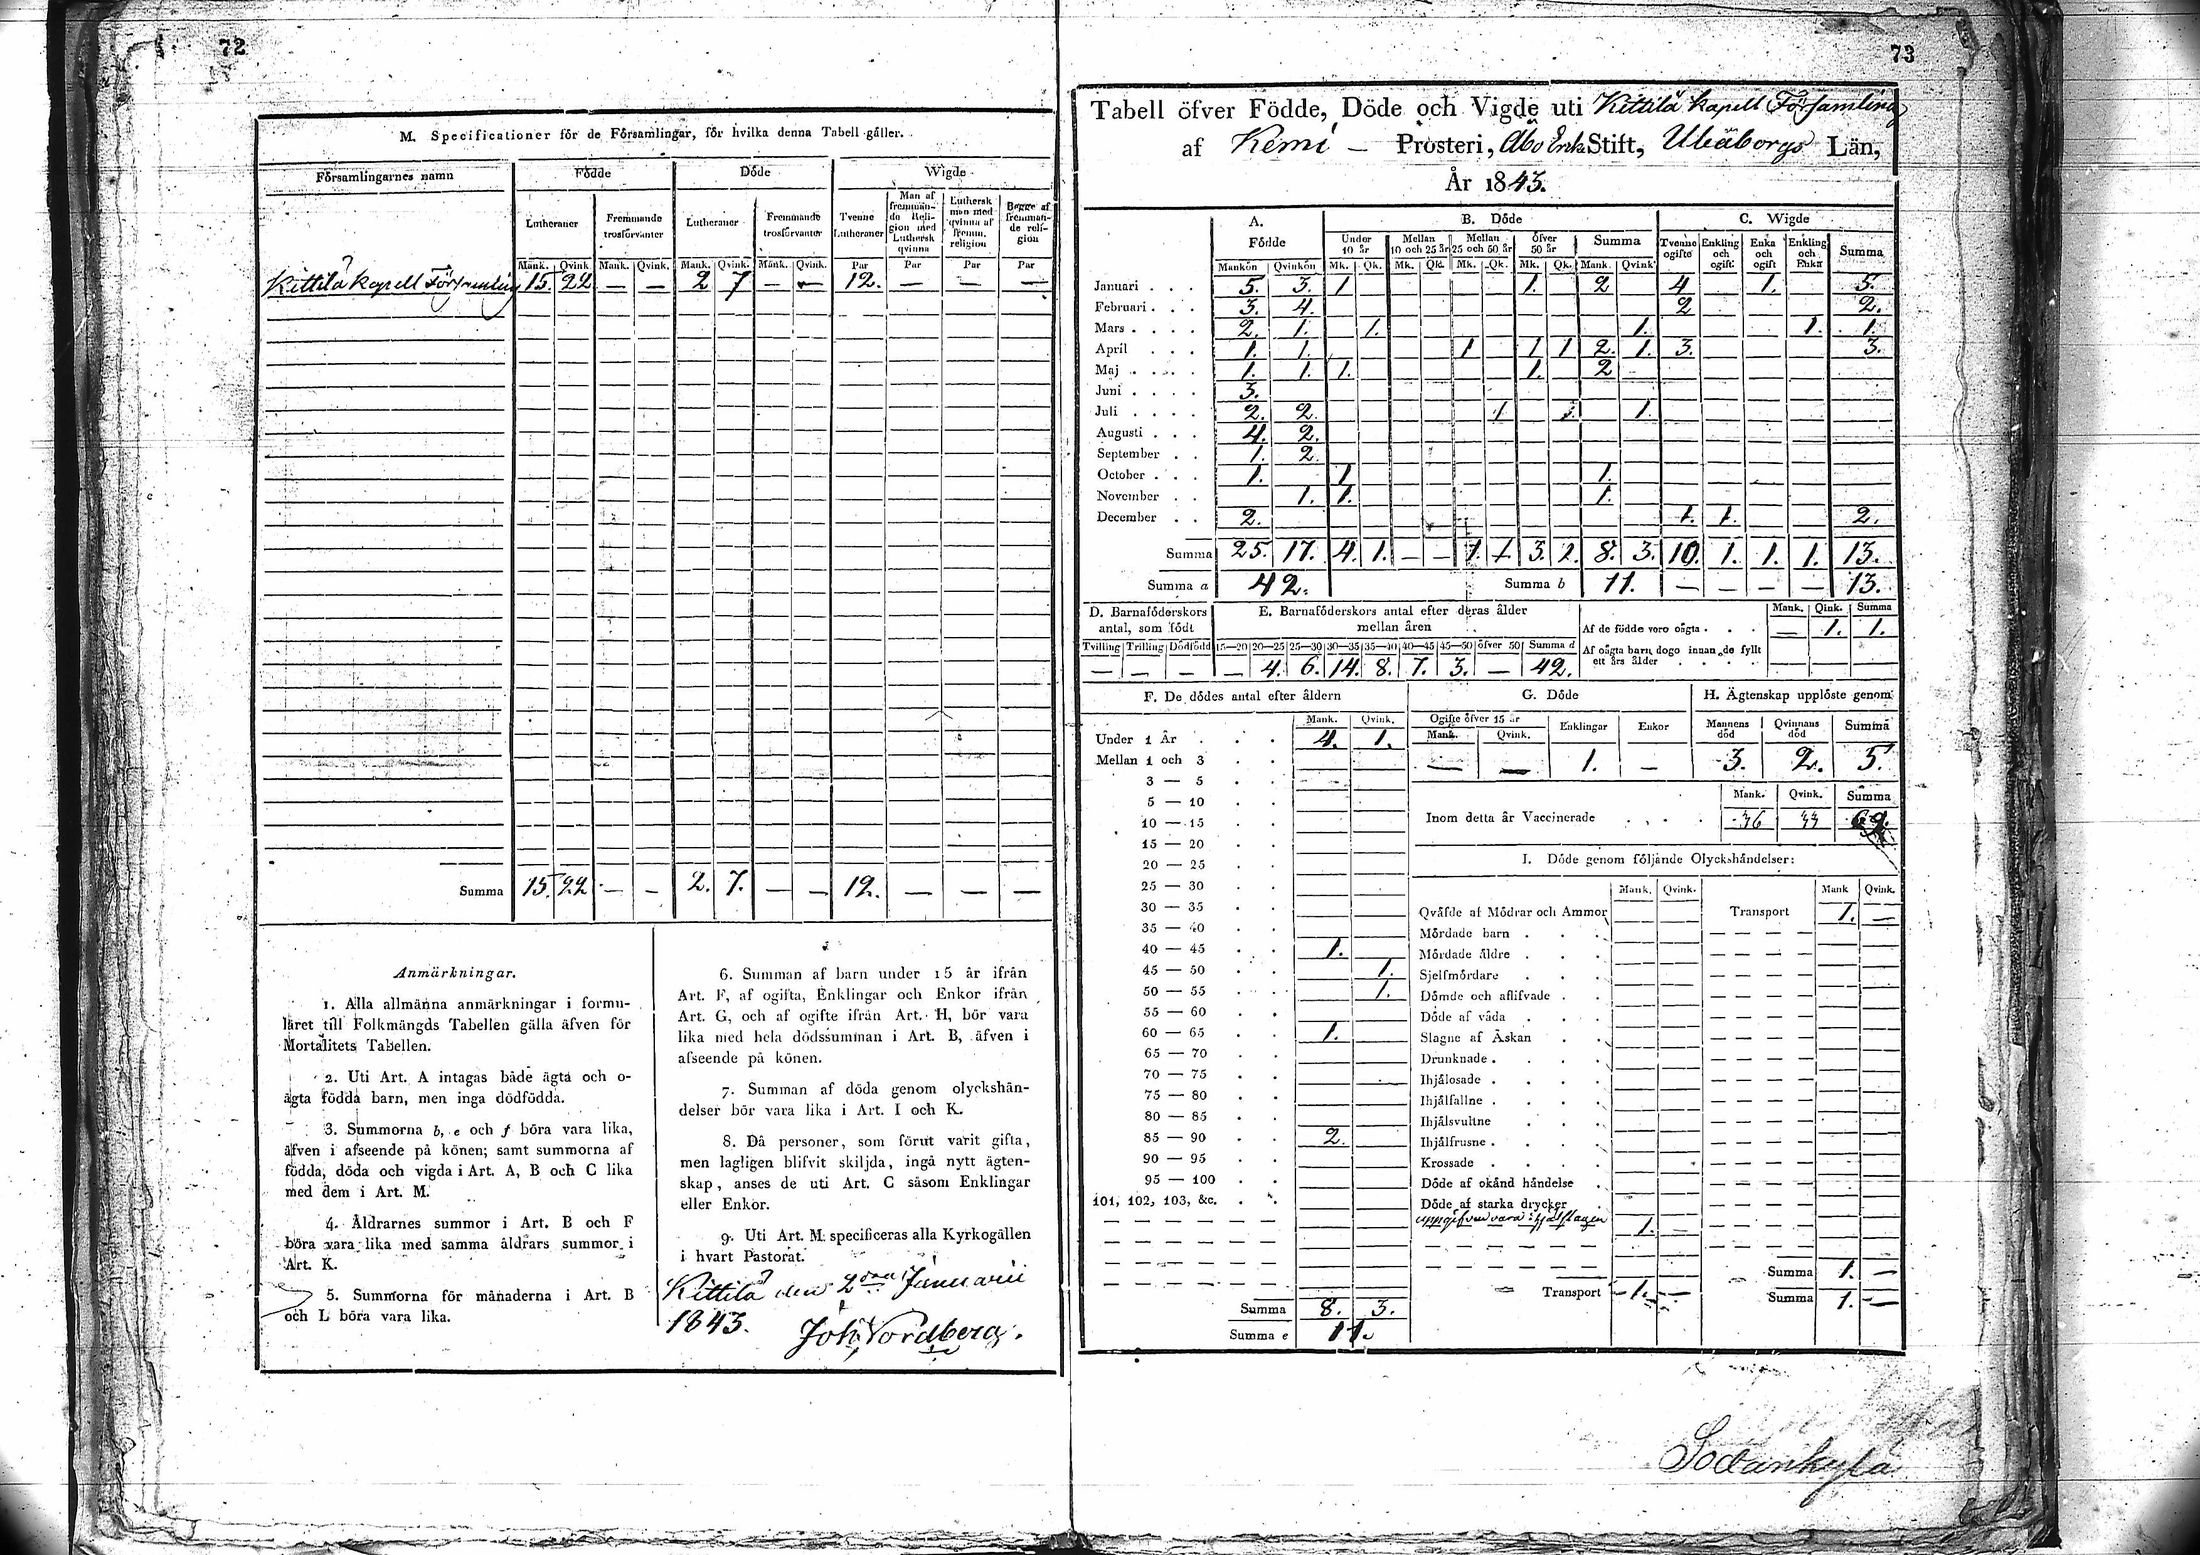 72
M. Specificationer för de Församlingar, för hvilka denna Tabell gäller.
Församlingarnes namn
Födde
Döde
Wigde
Lutheraner
Fremmande trosförvanter
Lutheraner
Fremmande trosförvanter
Tvenne Lutheraner
Man af fremmande Religion med Luthersk qvinna
Luthersk man med qvinna af fremm. religion
Begge af fremmande religion
Mank. Qvink. Mank. Qvink. Mank. Qvink. Mank. Qvink. Par Par Par Par
Kittilä kapell Församling 15. 22 — — 2 7 — — 12. — — —
Summa 15. 22 — — 2. 7. — — 12. — — —
Anmärkningar.
1. Alla allmänna anmärkningar i formu-
läret till Folkmängds Tabellen gälla äfven för
Mortalitets Tabellen.
2. Uti Art. A intagas både ägta och o-
ägta födda barn, men inga dödfödda.
3. Summorna b, e och f böra vara lika,
äfven i afseende på könen; samt summorna af
födda, döda och vigda i Art. A, B och C lika
med dem i Art. M.
4. Åldrarnes summor i Art. B och F
böra vara lika med samma åldrars summor i
Art. K.
5. Summorna för månaderna i Art. B
och L böra vara lika.
6. Summan af barn under 15 år ifrån
Art. F, af ogifta, Enklingar och Enkor ifrån
Art. G, och af ogifte ifrån Art. H, bör vara
lika med hela dödssumman i Art. B, äfven i
afseende på könen.
7. Summan af döda genom olyckshän-
delser bör vara lika i Art. I och K.
8. Då personer, som förut varit gifta,
men lagligen blifvit skiljda, ingå nytt ägten-
skap, anses de uti Art. C såsom Enklingar
eller Enkor.
9. Uti Art. M. specificeras alla Kyrkogällen
i hvart Pastorat.
Kittilä den 2dra Januarii
1843. Joh. Nordberg.
73
Tabell öfver Födde, Döde och Vigde uti Kittilä kapell Församling
af Kemi — Prosteri, Åbo Erke Stift, Uleåborgs Län,
År 1843.
A. Födde
B. Döde
C. Wigde
Under 10 år
Mellan 10 och 25 år
Mellan 25 och 50 år
Öfver 50 år
Summa
Tvenne ogifte
Enkling och ogift
Enka och ogift
Enkling och Enka
Summa
Mankön Qvinkön Mk. Qk. Mk. Qk. Mk. Qk. Mk. Qk. Mank. Qvink.
Januari . . . 5. 3. 1. 1. 2 4 1. 5.
Februari . . . 3. 4. 2 2.
Mars . . . . 2. 1. 1. 1. 1. 1.
April . . . 1. 1. 1 1 1 2. 1. 3. 3.
Maj . . . . 1. 1. 1. 1. 2
Juni . . . . 3.
Juli . . . . 2. 2. 1 1.
Augusti . . . 4. 2.
September . . 1. 2.
October . . . 1. 1. 1.
November . . 1. 1. 1.
December . . 2. 1. 1. 2.
Summa 25. 17. 4. 1. — — 1. 1 3. 8. 3. 10. 1. 1. 1. 13.
Summa a 42. Summa b 11. — — — — 13.
D. Barnaföderskors antal, som födt
Tvilling Trilling Dödfödd
— — —
E. Barnaföderskors antal efter deras ålder mellan åren
15—20 20—25 25—30 30—35 35—40 40—45 45—50 öfver 50 Summa d
— 4. 6. 14. 8. 7. 3. — 42.
Mank. Qink. Summa
Af de födde voro oägta . . . — 1. 1.
Af oägta barn dogo innan de fyllt
ett års ålder . . . .
F. De dödes antal efter åldern
Mank. Qvink.
Under 1 År . . . 4. 1.
Mellan 1 och 3 . .
3 — 5 . .
5 — 10 . .
10 — 15 . .
15 — 20 . .
20 — 25 . .
25 — 30 . .
30 — 35 . .
35 — 40 . .
40 — 45 . . 1.
45 — 50 . . 1.
50 — 55 . . 1.
55 — 60 . .
60 — 65 . . 1.
65 — 70 . .
70 — 75 . .
75 — 80 . .
80 — 85 . .
85 — 90 . . 2.
90 — 95 . .
95 — 100 . .
101, 102, 103, &c. . .
Summa 8. 3.
Summa e 11.
G. Döde
Ogifte öfver 15 år
Mank. Qvink. Enklingar Enkor
— — 1. —
H. Ägtenskap upplöste genom
Mannens död Qvinnans död Summa
3. 2. 5.
Mank. Qvink. Summa
Inom detta år Vaccinerade . . . . 36 33 69.
I. Döde genom följande Olyckshändelser:
Mank. Qvink. Mank Qvink.
Qväfde af Mödrar och Ammor Transport 1. —
Mördade barn . . .
Mördade äldre . . .
Sjelfmördare . .
Dömde och aflifvade . .
Döde af våda . . .
Slagne af Åskan . .
Drunknade . . . .
Ihjälosade . . . .
Ihjälfallne . . . .
Ihjälsvultne . .
Ihjälfrusne . . . .
Krossade . . . .
Döde af okänd händelse .
Döde af starka drycker .
uppgifven vara ihjälslagen 1. —
Transport 1. —
Summa 1. —
Summa 1. —
Sodankylä